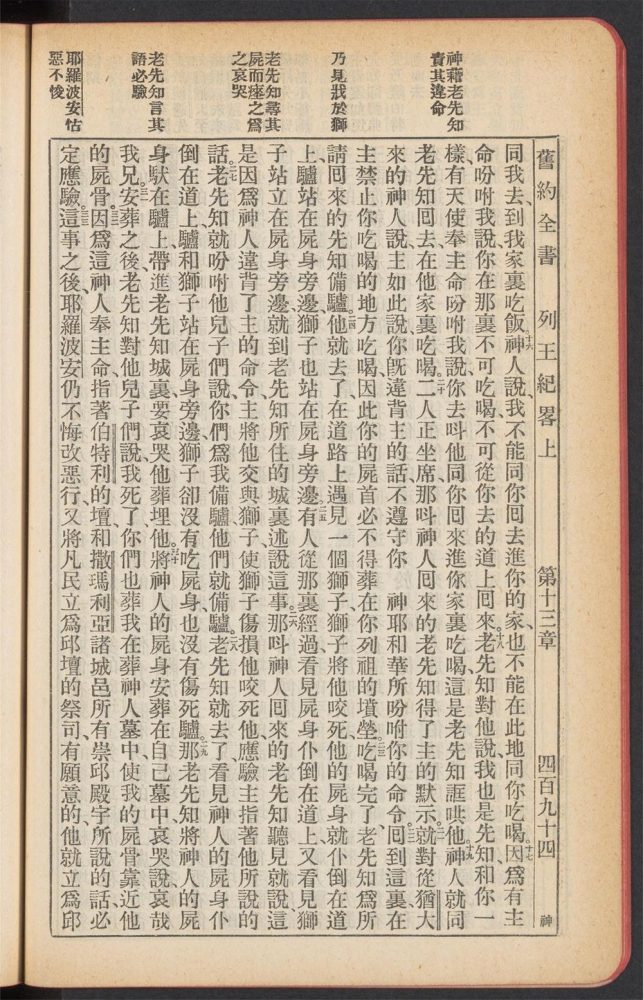 舊約全書 列王紀畧上 第十三章 四百九十四 神
神藉老先知
責其違命
乃見戕於獅
老先知尋其
屍而瘞之爲
之哀哭
老先知言其
語必驗
耶羅波安怙
惡不悛
同我去、到我家裏吃飯。十六神人說、我不能同你回去、進你的家、也不能在此地同你吃喝。十七因爲有主
命吩咐我說、你在那裏不可吃喝、不可從你去的道上回來。十八老先知對他說、我也是先知、和你一
樣、有天使奉主命吩咐我說、你去叫他同你回來、進你家裏吃喝、這是老先知誆哄他。十九神人就同
老先知回去、在他家裏吃喝。二十二人正坐席、那叫神人回來的老先知得了主的默示。二一就對從猶大
來的神人說、主如此說、你旣違背主的話、不遵守你 神耶和華所吩咐你的命令、二二回到這裏、在
主禁止你吃喝的地方吃喝、因此你的屍首必不得葬在你列祖的墳塋。二三吃喝完了、老先知爲所
請回來的先知備驢。二四他就去了、在道路上遇見一個獅子、獅子將他咬死、他的屍身就仆倒在道
上、驢站在屍身旁邊、獅子也站在屍身旁邊。二五有人從那裏經過、看見屍身仆倒在道上、又看見獅
子站立在屍身旁邊、就到老先知所住的城裏述說這事。二六那叫神人回來的老先知聽見、就說、這
是因爲神人違背了主的命令、主將他交與獅子、使獅子傷損他、咬死他、應驗主指著他所說的
話。二七老先知就吩咐他兒子們說、你們爲我備驢、他們就備驢。二八老先知就去了、看見神人的屍身仆
倒在道上、驢和獅子站在屍身旁邊、獅子卻沒有吃屍身、也沒有傷死驢。二九那老先知將神人的屍
身馱在驢上、帶進老先知城裏、要哀哭他、葬埋他。三十將神人的屍身安葬在自己墓中、哀哭說、哀哉
我兄。三一安葬之後、老先知對他兒子們說、我死了、你們也葬我在葬神人墓中、使我的屍骨靠近他
的屍骨。三二因爲這神人奉主命、指著伯特利的壇、和撒瑪利亞諸城邑所有崇邱殿宇所說的話、必
定應驗。三三這事之後、耶羅波安仍不悔改惡行、又將凡民立爲邱壇的祭司、有願意的、他就立爲邱